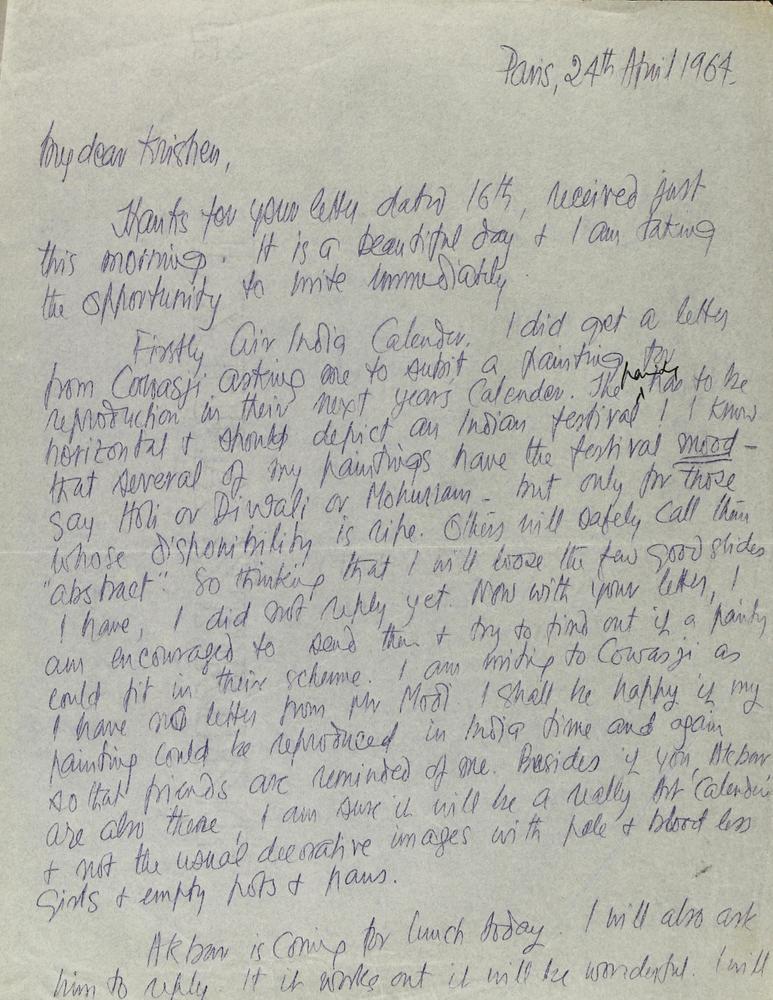 Paris, 24th April 1964.
My dear Krishen,
Thanks for your letter dated 16th, received just
this morning. It is a beautiful day & I am taking
the opportunity to write immediately.
Firstly Air India Calender. I did get a letter
from Cowasji asking me to submit a painting for
reproduction in their next years Calender. The painting has to be
horizontal & should depict an Indian festival! I know
that several of my paintings have the festival mood -
say Holi or Diwali or Mohurram - but only for those
whose disponibility is ripe. Others will safely call them
"abstract". So thinking that I will loose the few good slides
I have, I did not reply yet. Now with your letter, I
am encouraged to send them & try to find out if a painting
could fit in their scheme. I am writing to Cowasji as
I have no letter from Mr Modi. I shall be happy if my
painting could be reproduced in India time and again
so that friends are reminded of me. Besides if you, Akbar
are also there, I am sure it will be a really Art Calender
& not the usual decorative images with pale & blood less
girls & empty pots & pans.
Akbar is coming for lunch today. I will also ask
him to reply. If it works out it will be wonderful. I will